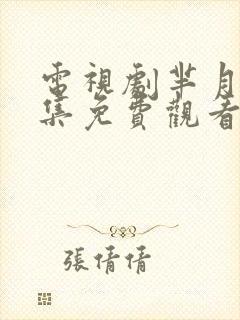 電視劇芈月
集免費觀看
張倩倩